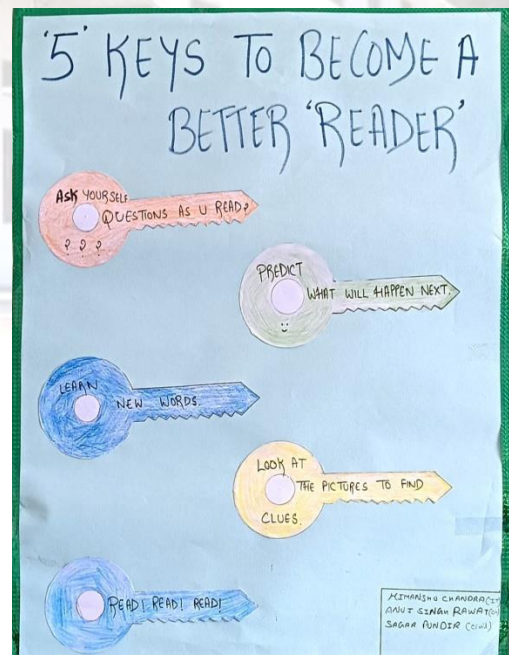 '5' KEYS TO BECOME A
BETTER 'READER'
ASK YOURSELF
QUESTIONS AS U READ?
? ? ?
PREDICT
WHAT WILL HAPPEN NEXT.
LEARN
NEW WORDS.
LOOK AT
THE PICTURES TO FIND
CLUES.
READ! READ! READ!
HIMANSHU CHANDRA (IT)
ANUJ SINGH RAWAT
SAGAR PUNDIR (Civil)